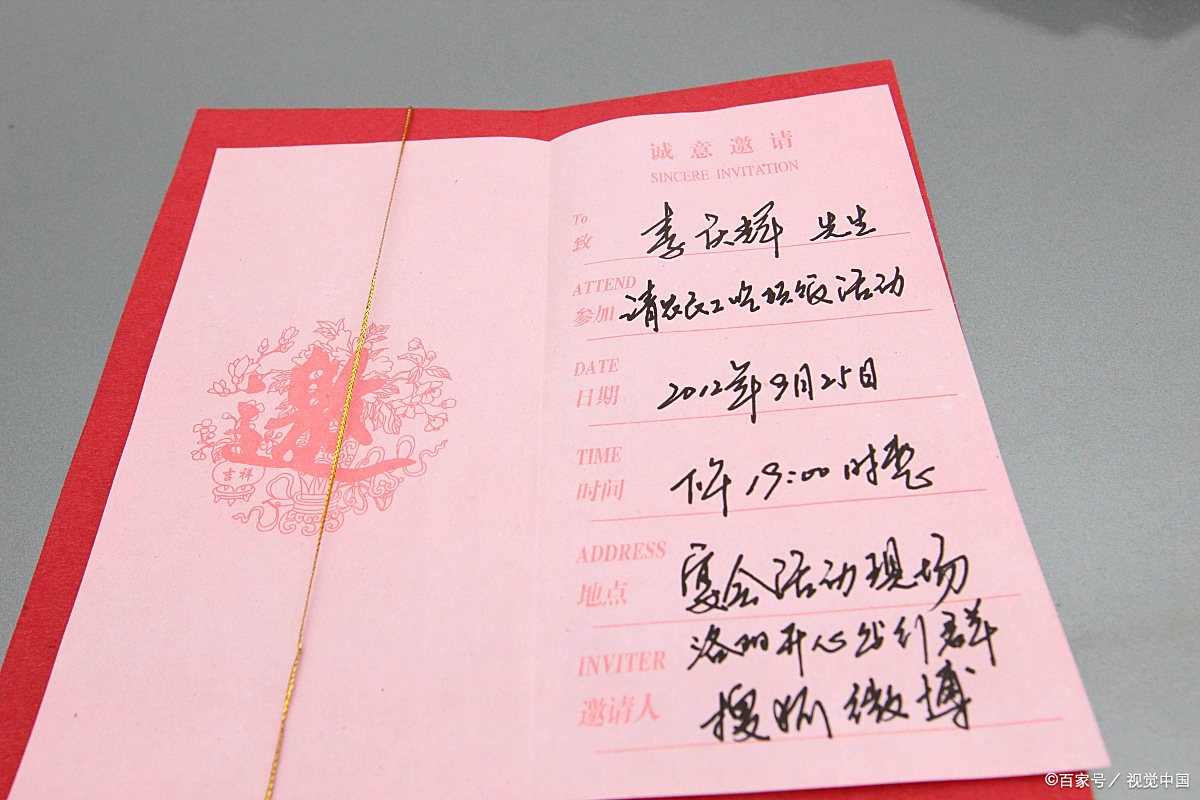 邀
吉祥
诚意邀请
SINCERE INVITATION
To
致 李庆辉 先生
ATTEND
参加 请农民工吃顿饭活动
DATE
日期 2012年9月25日
TIME
时间 下午19:00时整
ADDRESS
地点 宴会活动现场
洛阳开心 群
INVITER
邀请人 搜狐微博
©百家号／视觉中国